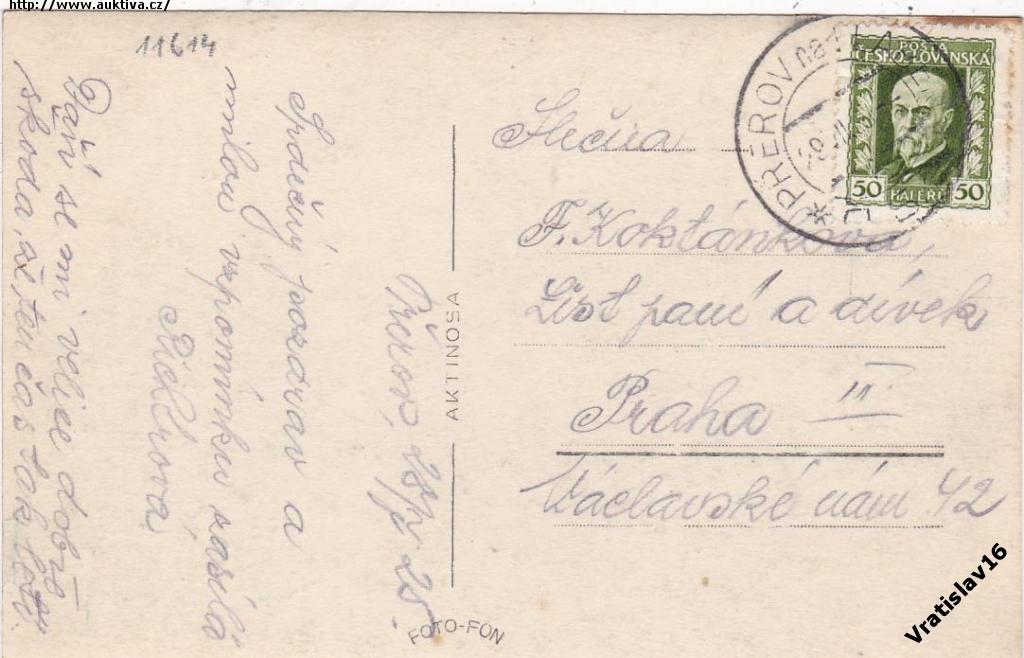 http://www.auktiva.cz/
11614
Přerov,
Srdečný pozdrav a
milou vzpomínku zasílá
Daří se mi velice dobře
škoda, že ten čas tak letí.
AKTINOSA
FOTO-FON
PŘEROV nad LA
POŠTA
ČESKOSLOVENSKÁ
50 HALÉŘŮ 50
Slečna
F. Koktánková,
List paní a dívek
Praha II
Václavské nám 42
Vratislav16